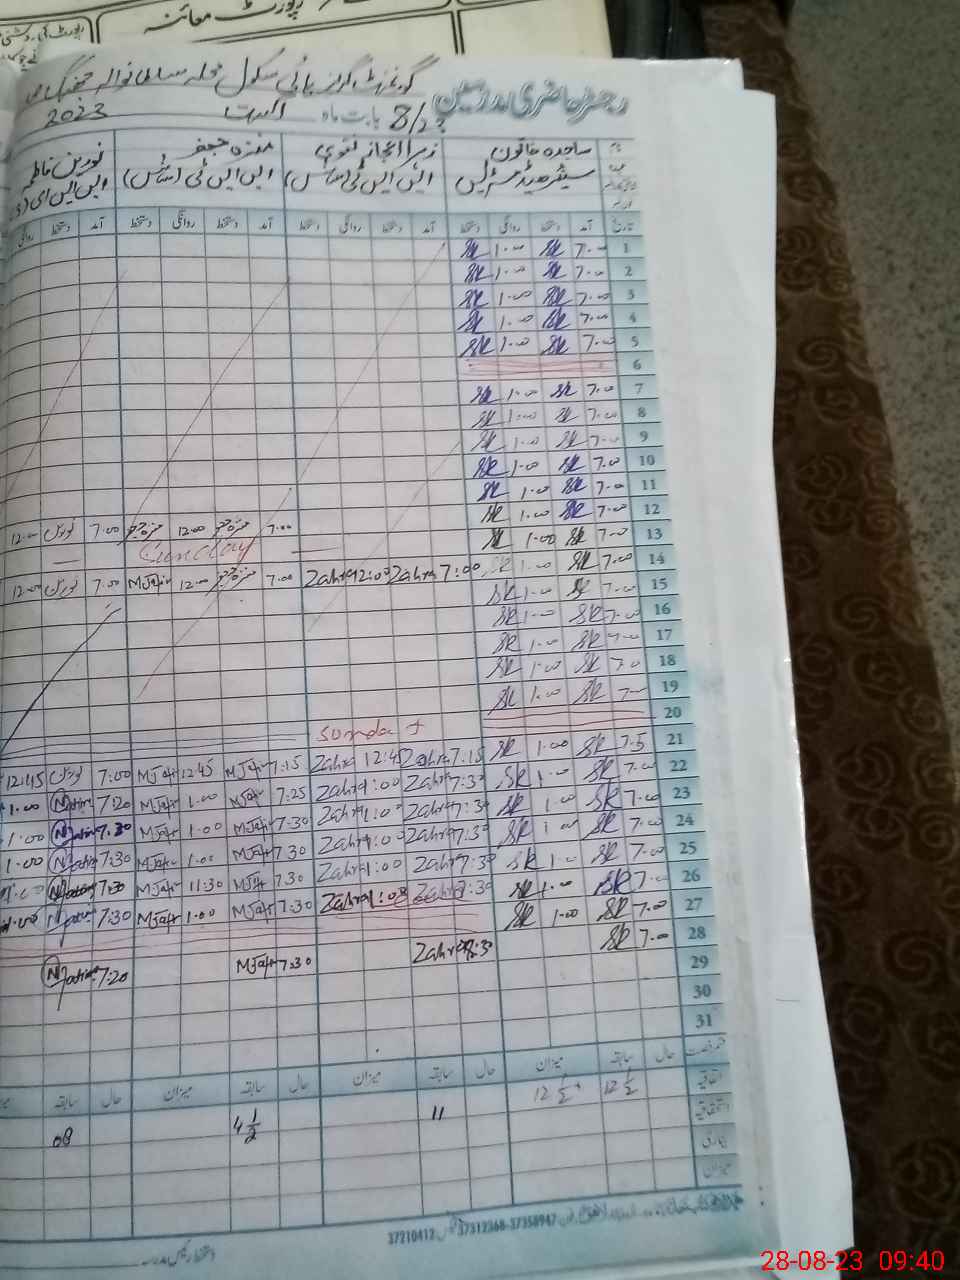 رپورٹ معائنہ
رجسٹر حاضری مدرسین
گورنمنٹ گرلز ہائی سکول محلہ
بابت ماہ 8/23 اگست 2023
نام ساجدہ خاتون زہرا اعجاز نقوی منزہ جعفر نورین فاطمہ
سینئر ہیڈ مسٹریس ایس ایس ٹی (سائنس) ایس ایس ٹی (سائنس) ایس ایس ای
تاریخ آمد دستخط روانگی دستخط آمد دستخط روانگی دستخط آمد دستخط روانگی دستخط آمد دستخط روانگی
1 7.00 SK 1.00 SK
2 7.00 SK 1.00 SK
3 7.00 SK 1.00 SK
4 7.00 SK 1.00 SK
5 7.00 SK 1.00 SK
6
7 7.00 SK 1.00 SK
8 7.00 SK 1.00 SK
9 7.00 SK 1.00 SK
10 7.00 SK 1.00 SK
11 7.00 SK 1.00 SK
12 7.00 SK 1.00 SK
13 7.00 SK 1.00 SK 7.00 12.00 7.00 نورین 12.00
Sunday
14 7.00 SK 1.00 SK 7:00 Zahra 12:00 Zahra 7.00 12.00 MJafr 7.00 نورین 12.00
15 7.00 SK 1.00 SK
16 7.00 SK 1.00 SK
17 7.00 SK 1.00 SK
18 7.0 SK 1.00 SK
19 7 SK 1.00 SK
20 Sunda
21 7.5 SK 1.00 SK 7:15 Zahra 12:45 Zahra 7:15 MJafr 12:45 MJafr 7:00 نورین 12:45
22 7.00 SK 1.00 SK 7:30 Zahra 1:00 Zahra 7:25 MJafr 1.00 MJafr 7:20 1.00
23 7.00 SK 1.00 SK 7:30 Zahra 1:00 Zahra 7:30 MJafr 1:00 MJafr 7.30 1.00
24 7.00 SK 1.00 SK 7:30 Zahra 1:00 Zahra 7.30 MJafr 1.00 MJafr 7:30 1.00
25 7.00 SK 1.00 SK 7:30 Zahra 1:00 Zahra 7.30 MJafr 11:30 MJafr 7:30
26 7.00 SK 1.00 SK 7:30 Zahra 1:08 Zahra 7:30 MJafr 1.00 MJafr 7:30
27 7.00 SK 1.00 SK
28 7.00 SK 7:30 Zahra 7:30 MJafr 7:20
29
30
31
حال سابقہ میزان حال سابقہ میزان حال سابقہ میزان حال سابقہ
اتفاقیہ 12 1/2 12 1/2
استحقاقیہ 11 4 1/2 08
بیماری
میزان
37312368-37358947 37210412
28-08-23 09:40